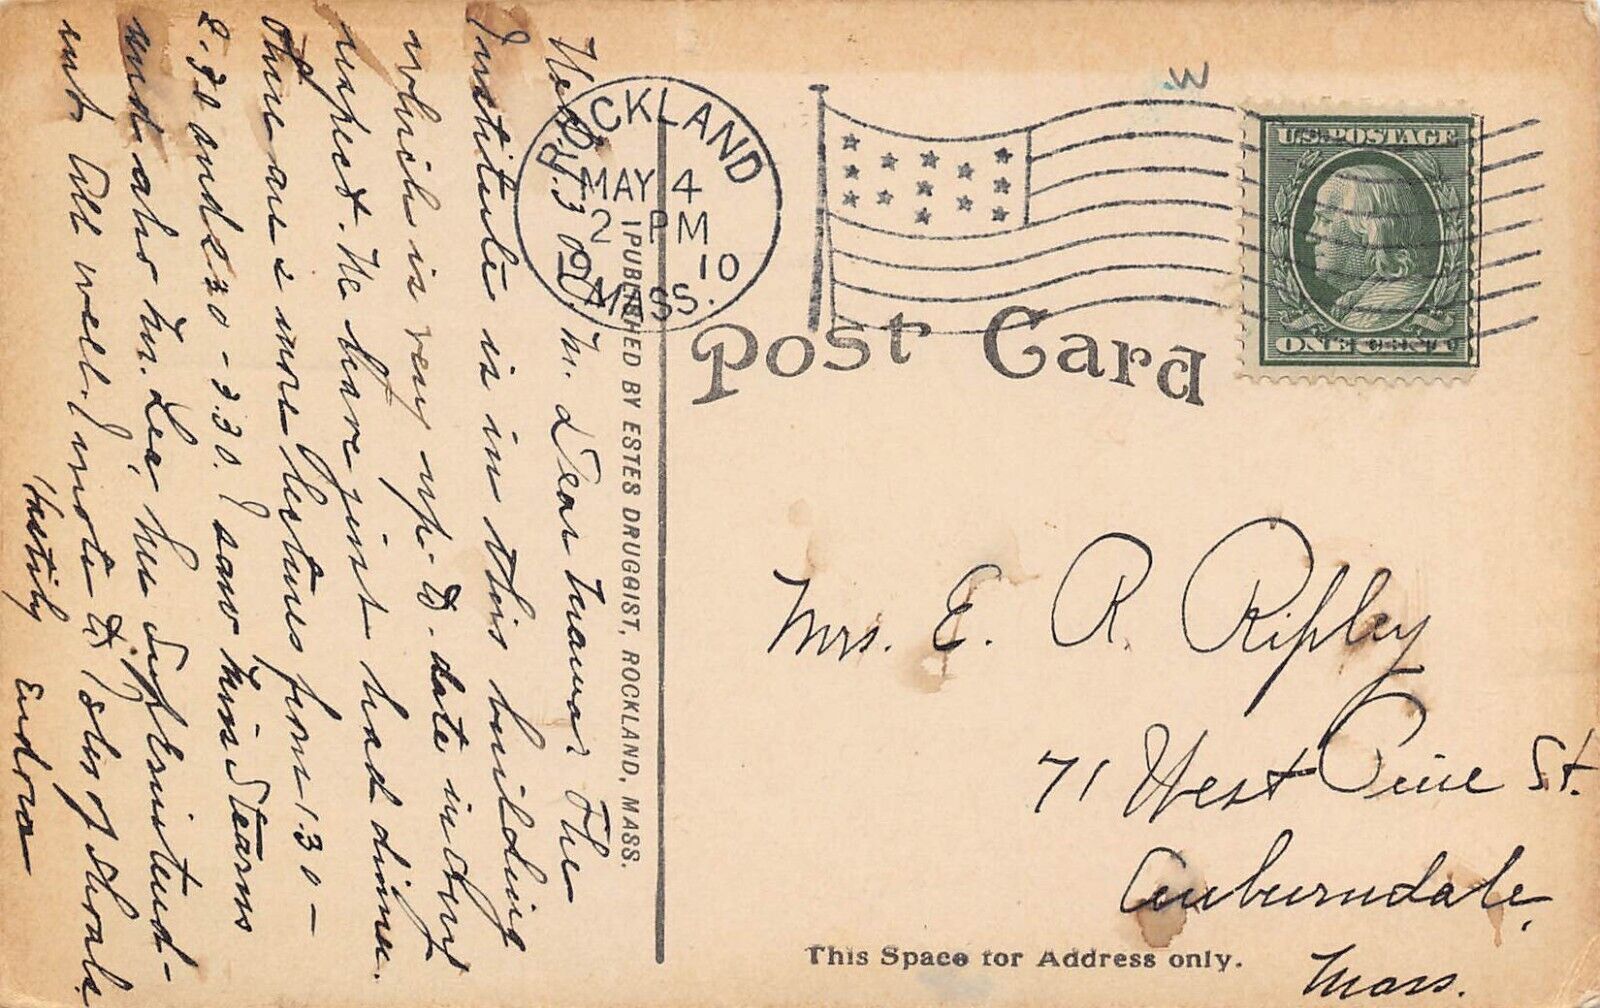 ROCKLAND
MAY 4
2 PM
10
MASS.
U.S. POSTAGE
ONE CENT
Post Card
PUBLISHED BY ESTES DRUGGIST, ROCKLAND, MASS.
Mrs. E. R. Ripley
71 West Pine St.
Auburndale,
Mass.
This Space for Address only.
Dear Mamar The
Institute is in this building
which is very up-to-date in every
respect. We have just had dinner.
There are 2 more lectures from 1.30 -
2.30 and 2.30 - 3.30. I saw Miss Stearns
and also Mr. Lee, her Superintend-
ent. All well. I wrote to Isles of Shoals.
Hastily
Eudora